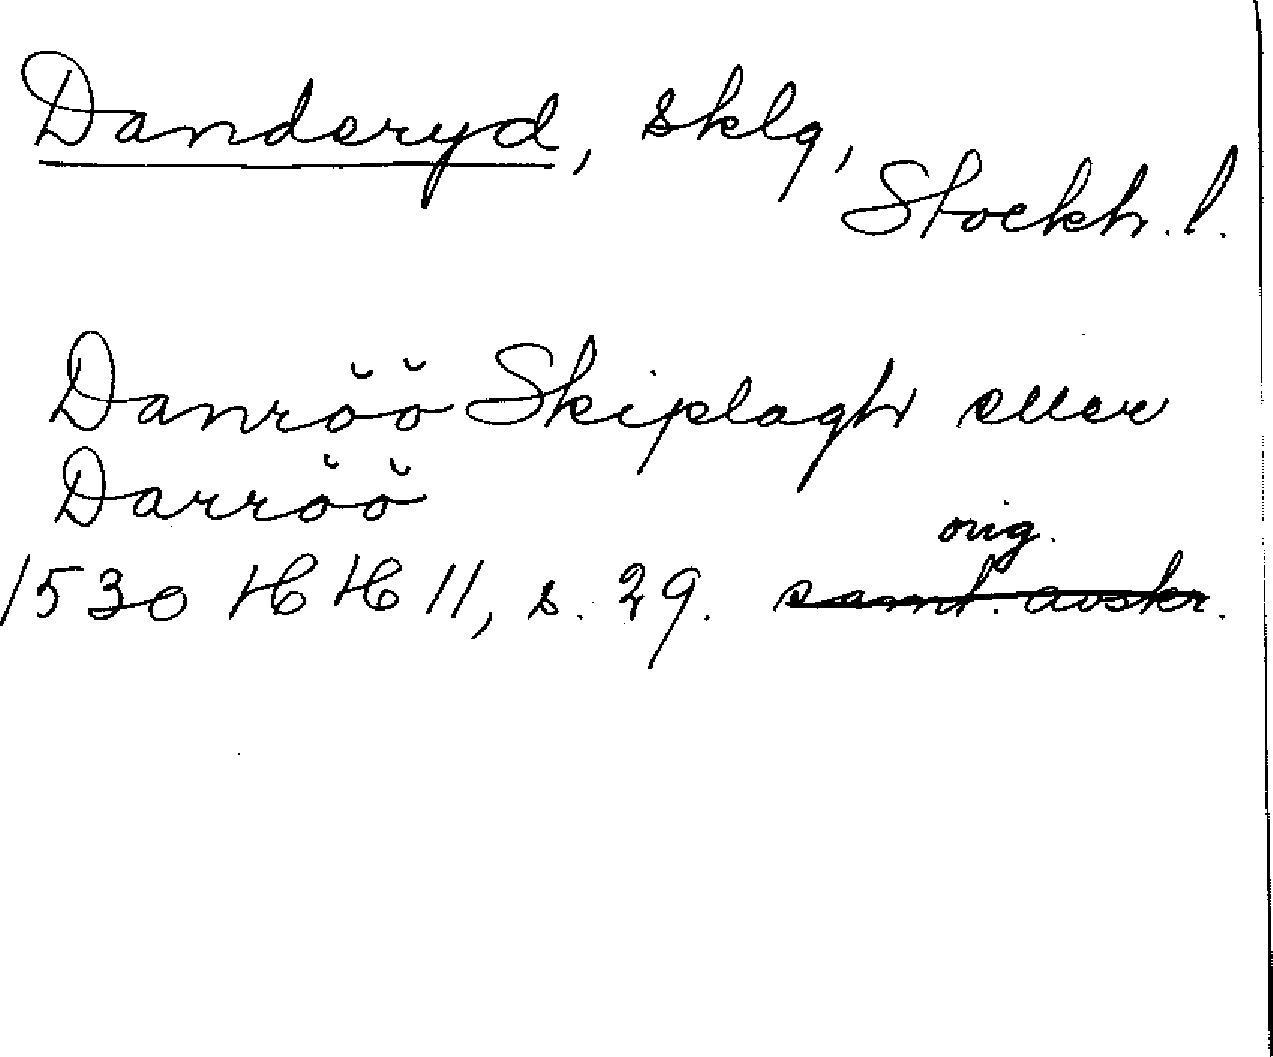 Danderyd, sklg,
Stockh. l.
Danröö Skiplagh eller
Darröö
orig.
1530 HH 11, s. 29. samt. avskr.